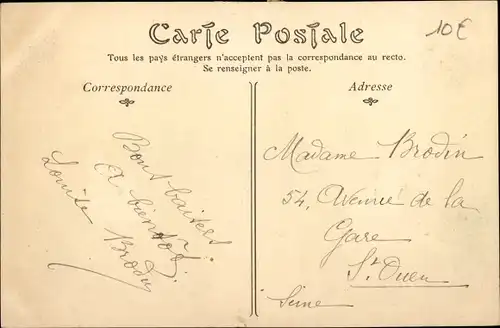 Carte Postale
10€
Tous les pays étrangers n'acceptent pas la correspondance au recto.
Se renseigner à la poste.
Correspondance
Adresse
Bons baisers.
A bientôt.
Louise Brodin
Madame Brodin
54, Avenue de la
Gare
St Ouen
Seine